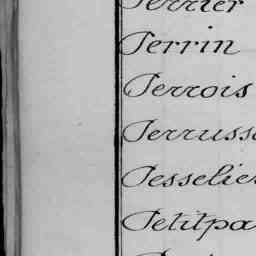 Perrier
Perrin
Perrois
Perrusse
Pesselie
Petitpa